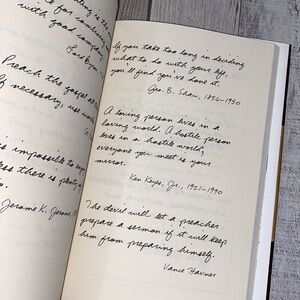 is the
for
with good comp
Lord Byron
Preach the gospel at
If necessary, use words
is impossible to
less there is plenty
Jerome K. Jerome
If you take too long in deciding
what to do with your life,
you'll find you've done it.
Geo. B. Shaw, 1856-1950
A loving person lives in a
loving world. A hostile person
lives in a hostile world;
everyone you meet is your
mirror.
Ken Keyes, Jr., 1921-1990
The devil will let a preacher
prepare a sermon if it will keep
him from preparing himself.
Vance Havner